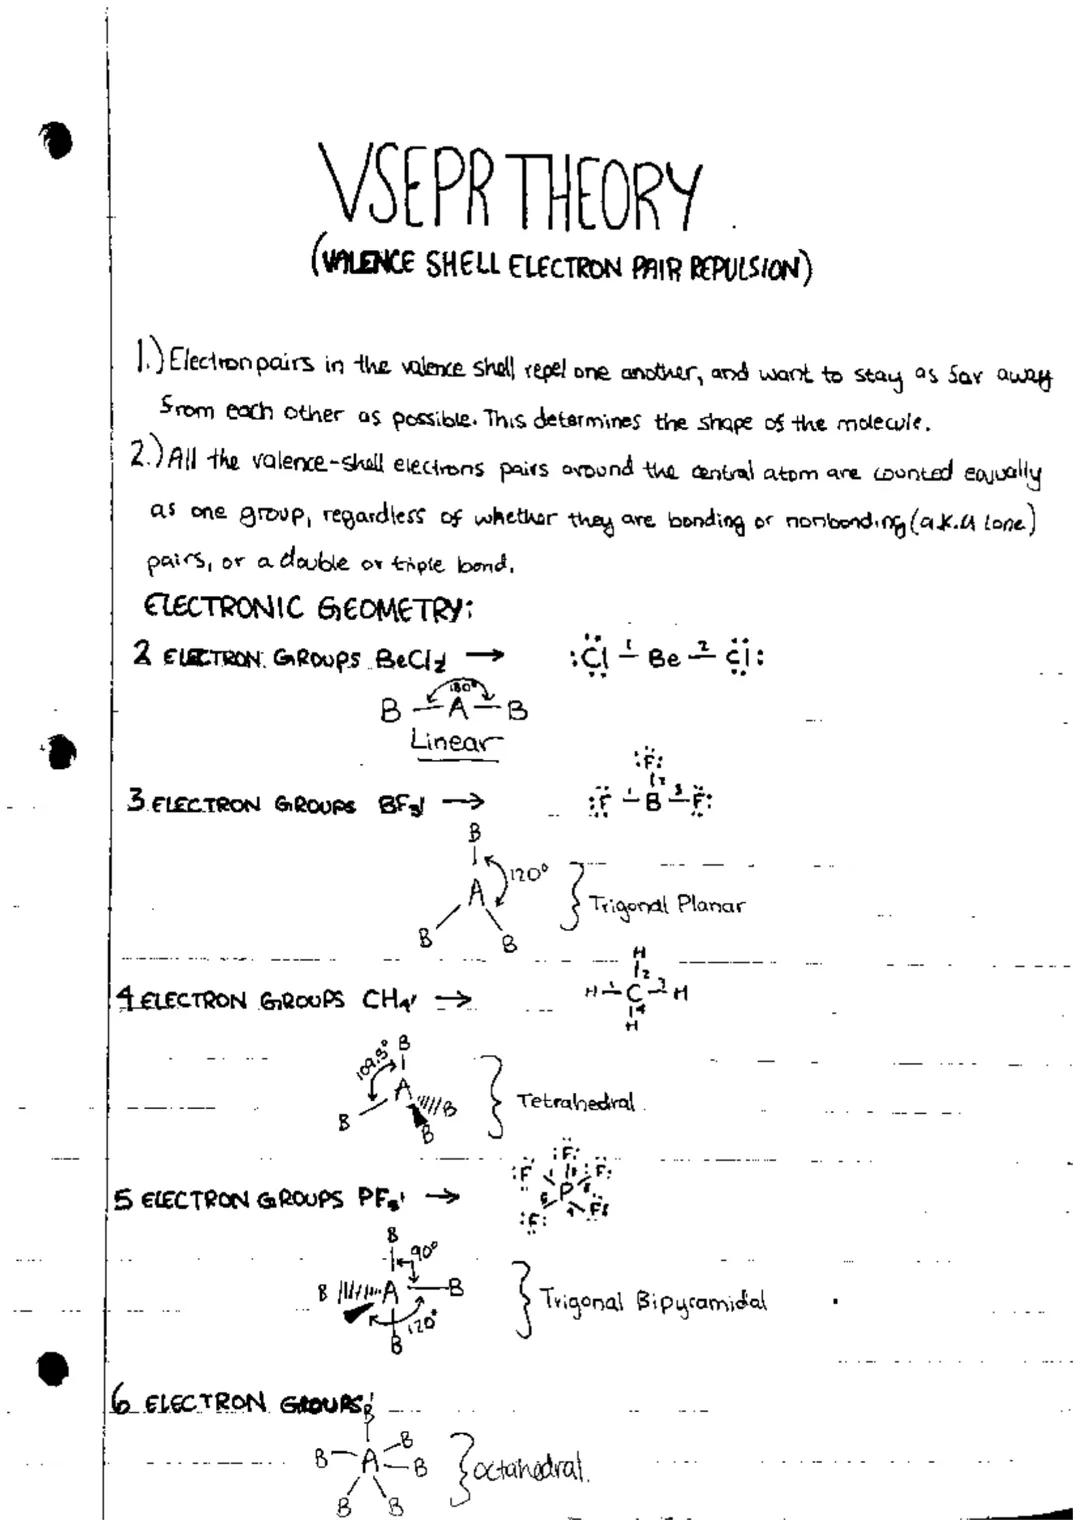 VSEPR THEORY
(VALENCE SHELL ELECTRON PAIR REPULSION)
1.) Electron pairs in the valence shell repel one another, and want to stay as far away
from each other as possible. This determines the shape of the molecule.
2.) All the valence-shell electrons pairs around the central atom are counted equally
as one group, regardless of whether they are bonding or nonbonding (a.k.a lone)
pairs, or a double or triple bond.
ELECTRONIC GEOMETRY:
2 ELECTRON GROUPS BeCl2 → :Cl 1 Be 2 Cl:
180°
B — A — B
Linear
:F:
3 ELECTRON GROUPS BF3 → :F 1 B 2 3 F:
B
A 120° } Trigonal Planar
B B
H
4 ELECTRON GROUPS CH4 → H 1 C 2 3 H
4
H
109.5° B
A B } Tetrahedral
B B
:F:
:F 1 F:
5 ELECTRON GROUPS PF5 → P
:F: F:
B
90°
B A B } Trigonal Bipyramidal
120°
B
6 ELECTRON GROUPS
B
B
B — A — B } octahedral.
B B